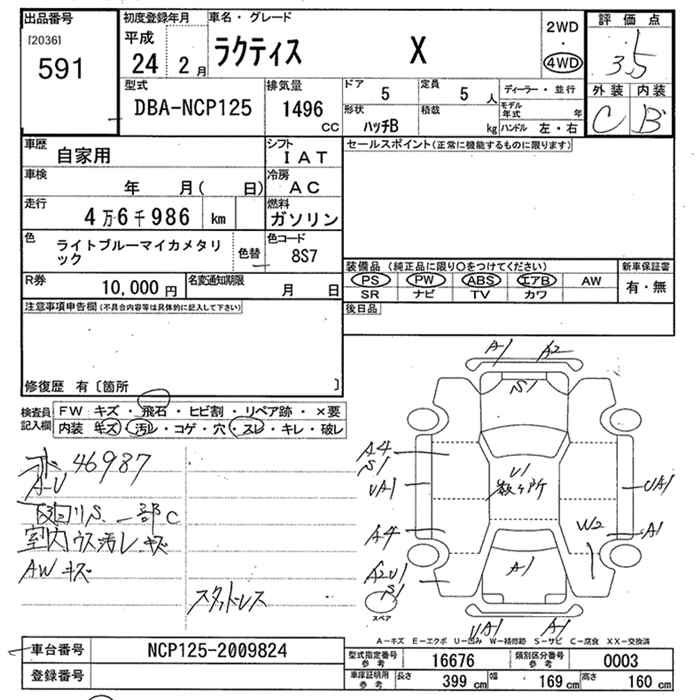 出品番号
[2036]
591
初度登録年月
平成
24 2月
車名・グレード
ラクティス X
2WD
・
4WD
評価点
3.5
外装 内装
C B
型式
DBA-NCP125
排気量
1496
cc
ドア
5
定員
5人
形状
ハッチB
積載
kg
ディーラー・並行
モデル年式 年
ハンドル 左・右
車歴
自家用
シフト
IAT
車検
年 月( 日)
冷房
AC
走行
4万6千986 km
燃料
ガソリン
色
ライトブルーマイカメタリ
ック
色替
色コード
8S7
R券
10,000円
名変通知期限
月 日
セールスポイント(正常に機能するものに限ります)
装備品(純正品に限り○をつけてください)
PS PW ABS エアB AW
SR ナビ TV カワ
新車保証書
有・無
後日品
注意事項申告欄(不具合内容等は具体的に記入して下さい)
修復歴 有〔箇所 〕
検査員
記入欄
FW キズ・飛石・ヒビ割・リペア跡・×要
内装 キズ・汚レ・コゲ・穴・スレ・キレ・破レ
46987
A-U
S. 一部C
室内ウス汚レ キズ
AWキズ
スタッドレス
A1 A2
S1
A4
S1
UA1
U1
数ヶ所
UA1
A4
W2
A1
A2U1
S1
A1
スペア
UA1 A1
A-キズ E-エクボ U-凹み W-補修跡 S-サビ C-腐食 XX-交換済
車台番号
NCP125-2009824
登録番号
型式指定番号
参考
16676
類別区分番号
参考
0003
車庫証明用
参考
長さ 399 cm
幅 169 cm
高さ 160 cm